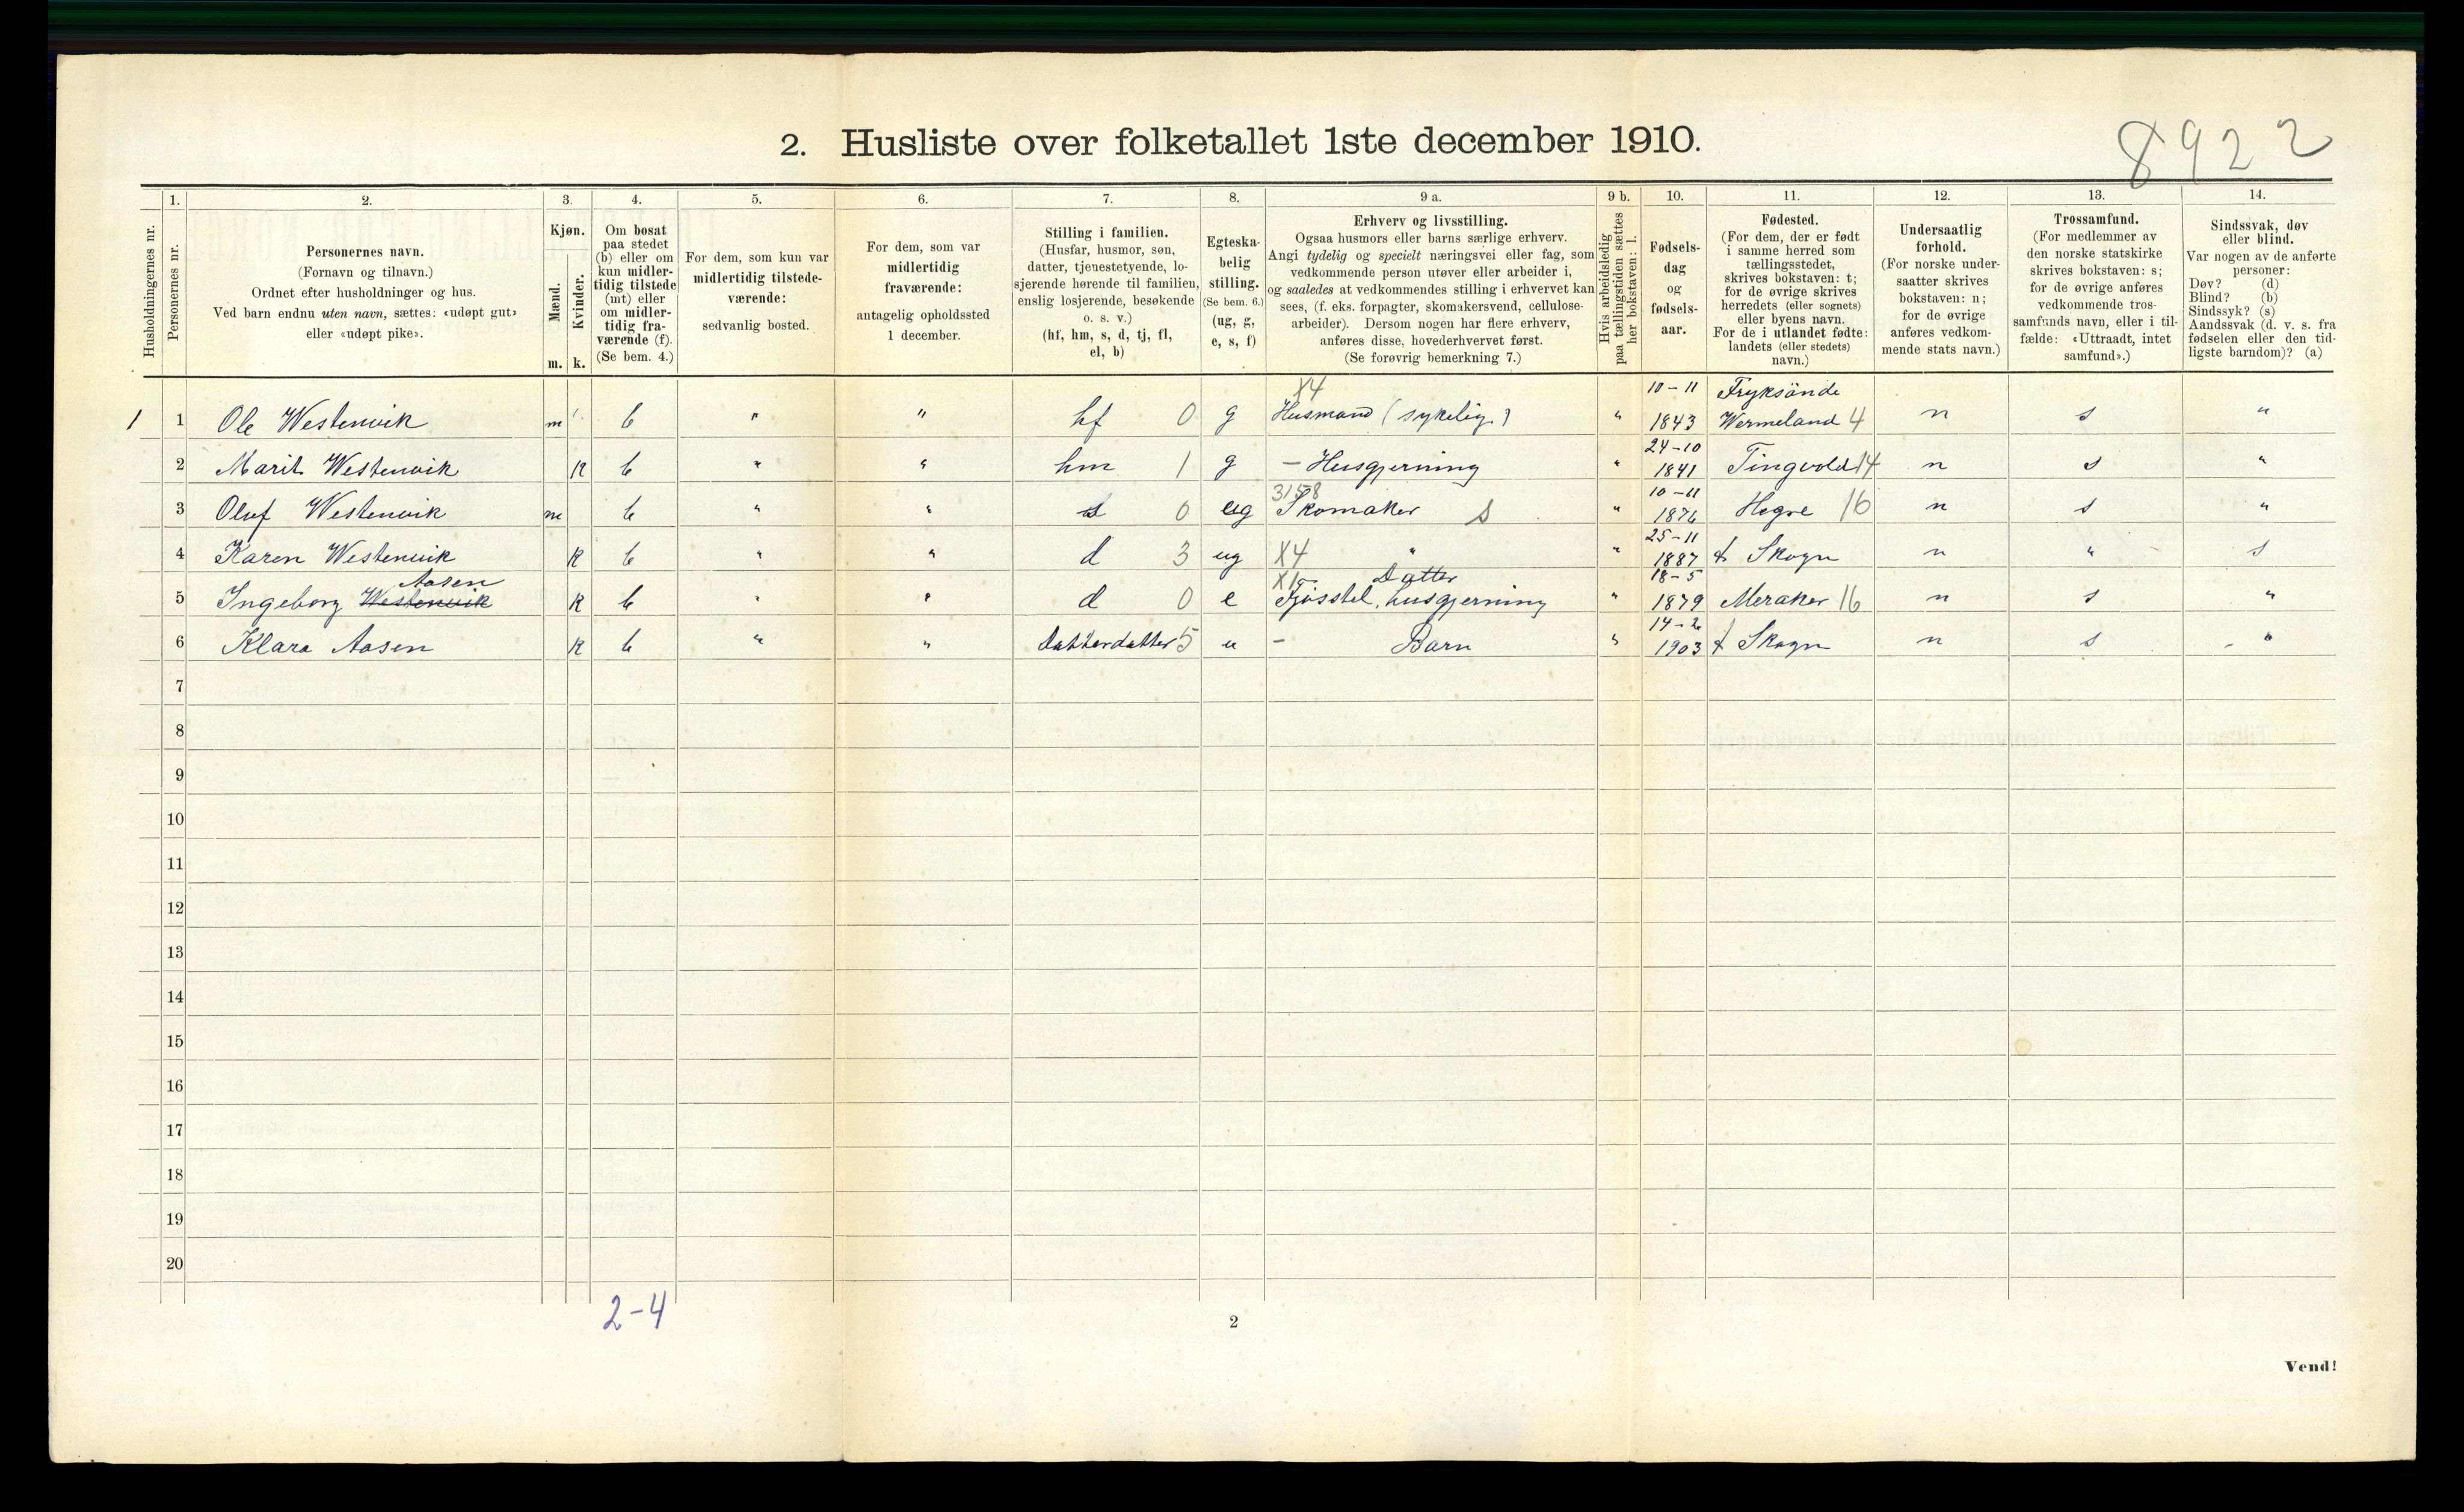 8922
2. Husliste over folketallet 1ste december 1910.
1. 2. 3. 4. 5. 6. 7. 8. 9 a. 9 b. 10. 11. 12. 13. 14.
Husholdningernes nr.
Personernes nr.
Personernes navn.
(Fornavn og tilnavn.)
Ordnet efter husholdninger og hus.
Ved barn endnu uten navn, sættes: «udøpt gut»
eller «udøpt pike».
Kjøn.
Mænd.
Kvinder.
m. k.
Om bosat
paa stedet
(b) eller om
kun midler-
tidig tilstede
(mt) eller
om midler-
tidig fra-
værende (f).
(Se bem. 4.)
For dem, som kun var
midlertidig tilstede-
værende:
sedvanlig bosted.
For dem, som var
midlertidig
fraværende:
antagelig opholdssted
1 december.
Stilling i familien.
(Husfar, husmor, søn,
datter, tjenestetyende, lo-
sjerende hørende til familien,
enslig losjerende, besøkende
o. s. v.)
(hf, hm, s, d, tj, fl,
el, b)
Egteska-
belig
stilling.
(Se bem. 6.)
(ug, g,
e, s, f)
Erhverv og livsstilling.
Ogsaa husmors eller barns særlige erhverv.
Angi tydelig og specielt næringsvei eller fag, som
vedkommende person utøver eller arbeider i,
og saaledes at vedkommendes stilling i erhvervet kan
sees, (f. eks. forpagter, skomakersvend, cellulose-
arbeider). Dersom nogen har flere erhverv,
anføres disse, hovederhvervet først.
(Se forøvrig bemerkning 7.)
Hvis arbeidsledig
paa tællingstiden sættes
her bokstaven: l.
Fødsels-
dag
og
fødsels-
aar.
Fødested.
(For dem, der er født
i samme herred som
tællingsstedet,
skrives bokstaven: t;
for de øvrige skrives
herredets (eller sognets)
eller byens navn.
For de i utlandet fødte:
landets (eller stedets)
navn.)
Undersaatlig
forhold.
(For norske under-
saatter skrives
bokstaven: n;
for de øvrige
anføres vedkom-
mende stats navn.)
Trossamfund.
(For medlemmer av
den norske statskirke
skrives bokstaven: s;
for de øvrige anføres
vedkommende tros-
samfunds navn, eller i til-
fælde: «Uttraadt, intet
samfund».)
Sindssvak, døv
eller blind.
Var nogen av de anførte
personer:
Døv? (d)
Blind? (b)
Sindssyk? (s)
Aandssvak (d. v. s. fra
fødselen eller den tid-
ligste barndom)? (a)
X4 10-11 Fryksände
1 1 Ole Westenvik m b " " hf 0 g Husmand (sykelig) " 1843 Wermeland 4 n s "
24-10
2 Marit Westenvik k b " " hm 1 g - Husgjerning " 1841 Tingvold 14 n s "
3158 10-11
3 Oluf Westenvik m b " " s 0 ug Skomaker s " 1876 Hegre 16 n s "
25-11
4 Karen Westenvik k b " " d 3 ug X4 " " 1887 t Skogn n " s
Aasen Datter 18-5
5 Ingeborg Westenvik k b " " d 0 e Fjøsstel, husgjerning " 1879 Meraker 16 n s "
14-2
6 Klara Aasen k b " " datterdatter 5 u - Barn " 1903 t Skogn n s - "
7
8
9
10
11
12
13
14
15
16
17
18
19
20
2-4
2
Vend!